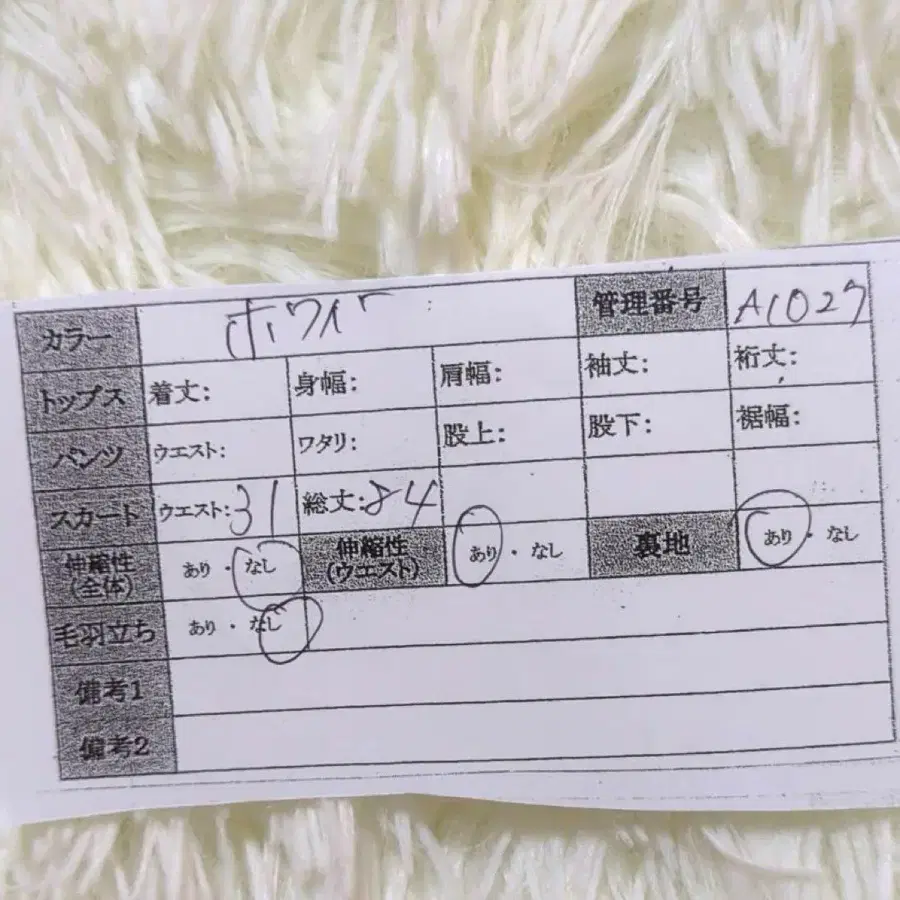 カラー ホワイト 管理番号 A1027
トップス 着丈: 身幅: 肩幅: 袖丈: 裄丈:
パンツ ウエスト: ワタリ: 股上: 股下: 裾幅:
スカート ウエスト:31 総丈:84
伸縮性(全体) あり・なし 伸縮性(ウエスト) あり・なし 裏地 あり・なし
毛羽立ち あり・なし
備考1
備考2